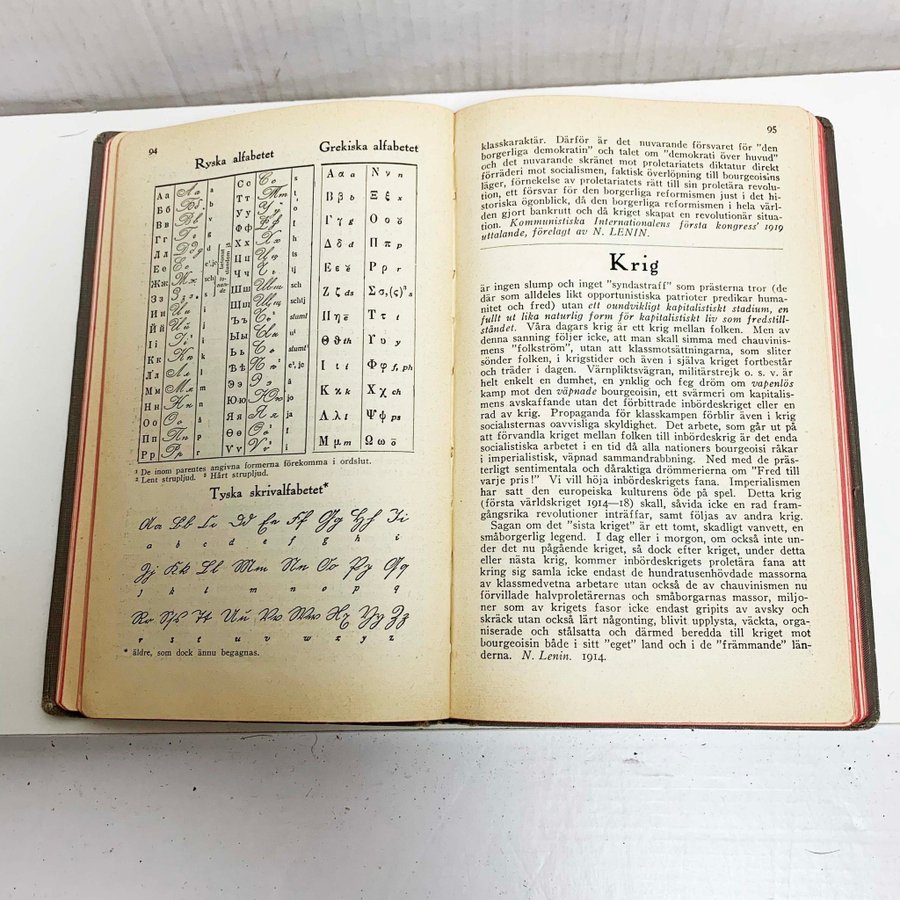 94
Ryska alfabetet
Аа a
Бб b
Вв v
Гг g
Дд d
Ее e', je
Жж sch
Зз s
Ии i
Йй j
Іі i
Кк k
Лл l
Мм m
Нн n
Оо å
Пп p
Рр r
Сс s
Тт t
Уу o
Фф f
Хх h
Цц ts
Чч tj
Шш sch
Щщ schtj
Ъъ stumt
Ыы
Ьь stumt
Ѣѣ e', je
Ээ ä
Юю jo
Яя ja
Ѳѳ f
Ѵѵ i
Grekiska alfabetet
Α α a
Β β b
Γ γ g
Δ δ d
Ε ε
Ζ ζ ds
Η η
Θ ϑ th
Ι ι i
Κ κ k
Λ λ l
Μ μ m
Ν ν n
Ξ ξ x
Ο ο
Π π p
Ρ ρ r
Σ σ, (ς)³ s
Τ τ t
Υ υ y
Φ φ f, ph
Χ χ ch
Ψ ψ ps
Ω ω
¹ De inom parentes angivna formerna förekomma i ordslut.
² Lent strupljud. ³ Hårt strupljud.
Tyska skrivalfabetet*
Aa Bb Cc Dd Ee Ff Gg Hh Ii
a b c d e f g h i
Jj Kk Ll Mm Nn Oo Pp Qq
j k l m n o p q
Rr Sſs Tt Uu Vv Ww Xx Yy Zz
r s t u v w x y z
* äldre, som dock ännu begagnas.
95
klasskaraktär. Därför är det nuvarande försvaret för "den
borgerliga demokratin" och talet om "demokrati över huvud"
och det nuvarande skränet mot proletariatets diktatur direkt
förräderi mot socialismen, faktisk överlöpning till bourgeoisins
läger, förnekelse av proletariatets rätt till sin proletära revolu-
tion, ett försvar för den borgerliga reformismen just i det hi-
storiska ögonblick, då den borgerliga reformismen i hela värl-
den gjort bankrutt och då kriget skapat en revolutionär situa-
tion. Kommunistiska Internationalens första kongress' 1919
uttalande, förelagt av N. LENIN.
Krig
är ingen slump och inget "syndastraff" som prästerna tror (de
där som alldeles likt opportunistiska patrioter predikar huma-
nitet och fred) utan ett oundvikligt kapitalistiskt stadium, en
fullt ut lika naturlig form för kapitalistiskt liv som fredstill-
ståndet. Våra dagars krig är ett krig mellan folken. Men av
denna sanning följer icke, att man skall simma med chauvinis-
mens "folkström", utan att klassmotsättningarna, som sliter
sönder folken, i krigstider och även i själva kriget fortbestår
och träder i dagen. Värnpliktsvägran, militärstrejk o. s. v. är
helt enkelt en dumhet, en ynklig och feg dröm om vapenlös
kamp mot den väpnade bourgeoisin, ett svärmeri om kapitalis-
mens avskaffande utan det förbittrade inbördeskriget eller en
rad av krig. Propaganda för klasskampen förblir även i krig
socialisternas oavvisliga skyldighet. Det arbete, som går ut på
att förvandla kriget mellan folken till inbördeskrig är det enda
socialistiska arbetet i en tid då alla nationers bourgeoisi råkar
i imperialistisk, väpnad sammandrabbning. Ned med de präs-
terligt sentimentala och dåraktiga drömmerierna om "Fred till
varje pris!" Vi vill höja inbördeskrigets fana. Imperialismen
har satt den europeiska kulturens öde på spel. Detta krig
(första världskriget 1914—18) skall, såvida icke en rad fram-
gångsrika revolutioner inträffar, samt följas av andra krig.
Sagan om det "sista kriget" är ett tomt, skadligt vanvett, en
småborgerlig legend. I dag eller i morgon, om också inte un-
der det nu pågående kriget, så dock efter kriget, under detta
eller nästa krig, kommer inbördeskrigets proletära fana att
kring sig samla icke endast de hundratusenhövdade massorna
av klassmedvetna arbetare utan också de av chauvinismen nu
förvillade halvproletärernas och småborgarnas massor, miljo-
ner som av krigets fasor icke endast gripits av avsky och
skräck utan också lärt någonting, blivit upplysta, väckta, orga-
niserade och stålsatta och därmed beredda till kriget mot
bourgeoisin både i sitt "eget" land och i de "främmande" län-
derna. N. Lenin. 1914.